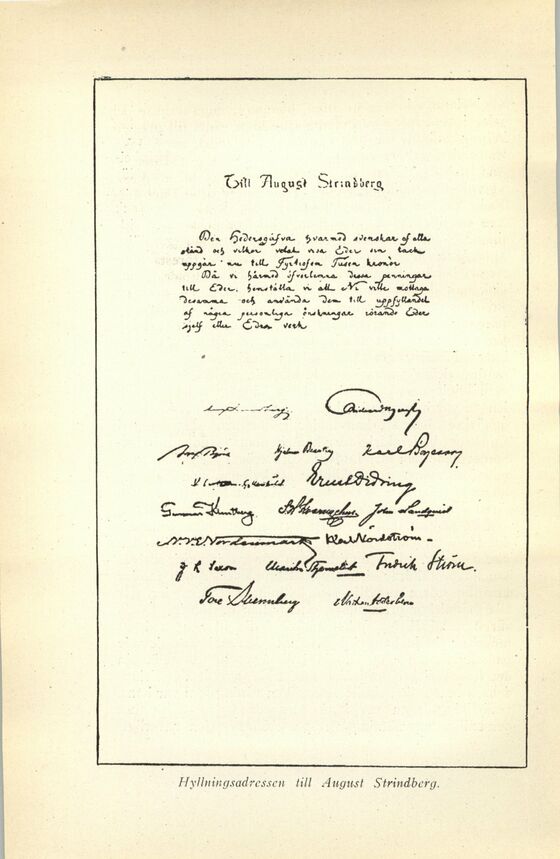 Till August Strindberg
Den Hedersgåfva hvarmed svenskar af alla
stånd och vilkor velat visa Eder sin tack
uppgår nu till Fyrtiofem Tusen kronor
Då vi härmed öfverlemna dessa penningar
till Eder, hemställa vi att Ni ville mottaga
desamma och använda dem till uppfyllandet
af några personliga önskningar rörande Eder
sjelf eller Edra verk
Karl Börjesson
Ernst Didring
Gunnar Klintberg John Landquist
N.V.E. Nordenmark Karl Nordström
J R Saxon Fredrik Ström.
Tore Svennberg
Hyllningsadressen till August Strindberg.